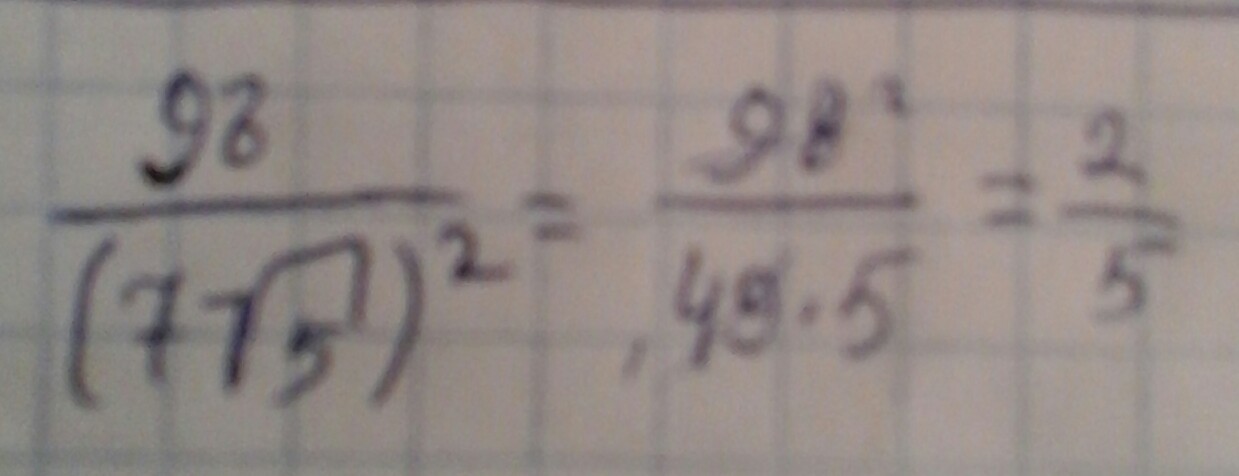 98/(7√5)² = 98²/49·5 = 2/5